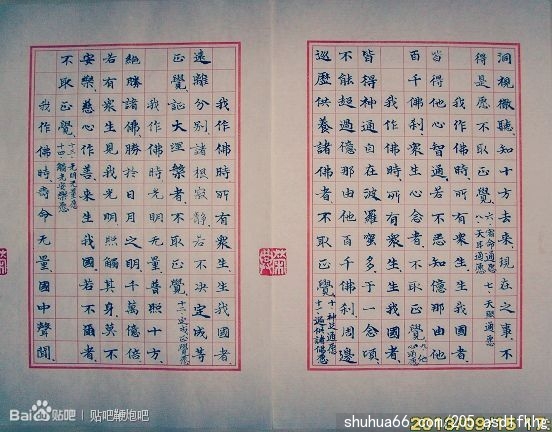 洞視徹聽。知十方去來現在之事。不
得是愿、不取正覺。六、宿命通愿 七、天眼通愿
八、天耳通愿
我作佛時。所有衆生。生我國者。
皆得他心智通。若不悉知億那由他
百千佛刹。衆生心念者。不取正覺。九、他
心通愿
我作佛時。所有衆生。生我國者。
皆得神通自在。波羅蜜多。于一念頃。
不能超過億那由他百千佛刹。周邊
巡歷供養諸佛者。不取正覺。十、神足通愿
十一、遍供諸佛愿
我作佛時。所有衆生。生我國者。
遠離分别。諸根寂静。若不決定成等
正覺。證大涅槃者。不取正覺。十二、定成正覺愿
我作佛時。光明无量。普照十方。
絕勝諸佛。勝于日月之明。千萬億倍
若有衆生。見我光明。照觸其身。莫不
安樂。慈心作善。來生我國。若不爾者。
不取正覺。十三、光明无量愿
十四、觸光安樂愿
我作佛時。壽命无量。國中聲聞
Baidu贴吧 | 贴吧鞭炮吧
shuhua66.com/205_asdtfkhg